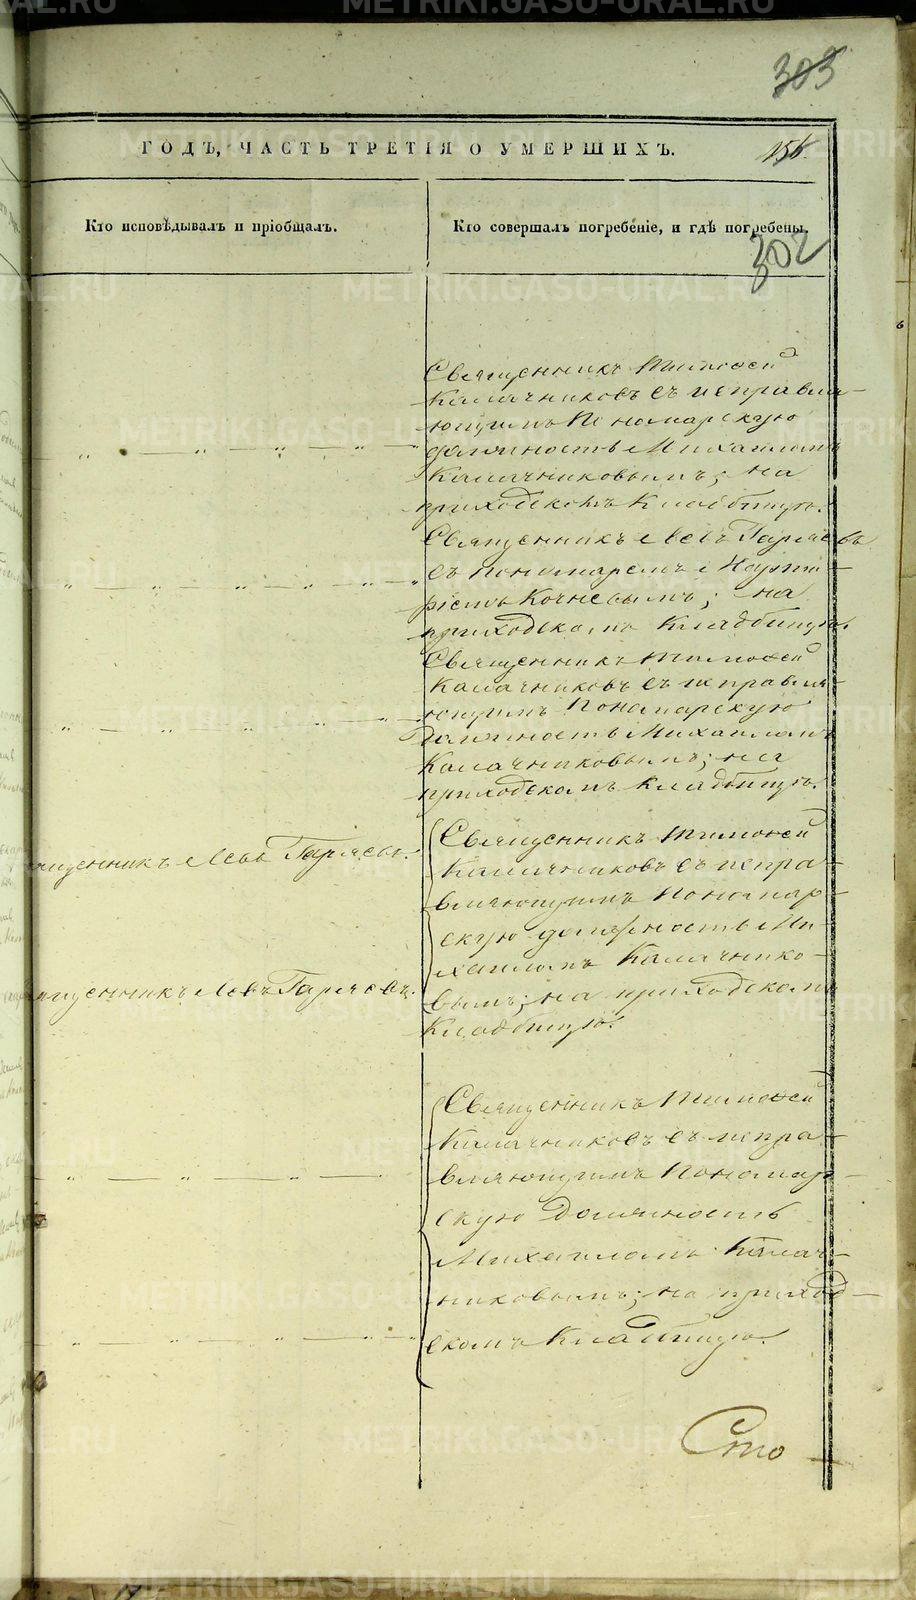 303
ГОДЪ, ЧАСТЬ ТРЕТІЯ О УМЕРШИХЪ.
156.
Кто исповѣдывалъ и пріобщалъ.
Кто совершалъ погребеніе, и гдѣ погребены.
302
Священникъ Тимоѳей
Калачниковъ съ исправля-
ющимъ Пономарскую
должность Михаиломъ
Калачниковымъ; на
приходскомъ Кладбищѣ.
Священникъ Левъ Гаряевъ
съ пономаремъ
Кочневымъ; на
приходскомъ Кладбищѣ.
Священникъ Тимоѳей
Калачниковъ съ исправля-
ющимъ Пономарскую
должность Михаиломъ
Калачниковымъ; на
приходскомъ Кладбищѣ.
щенникъ Левъ Гаряевъ.
Священникъ Тимоѳей
Калачниковъ съ испра-
вляющимъ Пономар-
скую должность Ми-
хаиломъ Калачнико-
щенникъ Левъ Гаряевъ.
вымъ; на приходскомъ
Кладбищѣ.
Священникъ Тимоѳей
Калачниковъ съ испра-
вляющимъ Пономар-
скую должность
Михаиломъ Калач-
никовымъ; на приход-
скомъ Кладбищѣ.
Сто
METRIKI.GASO-URAL.RU